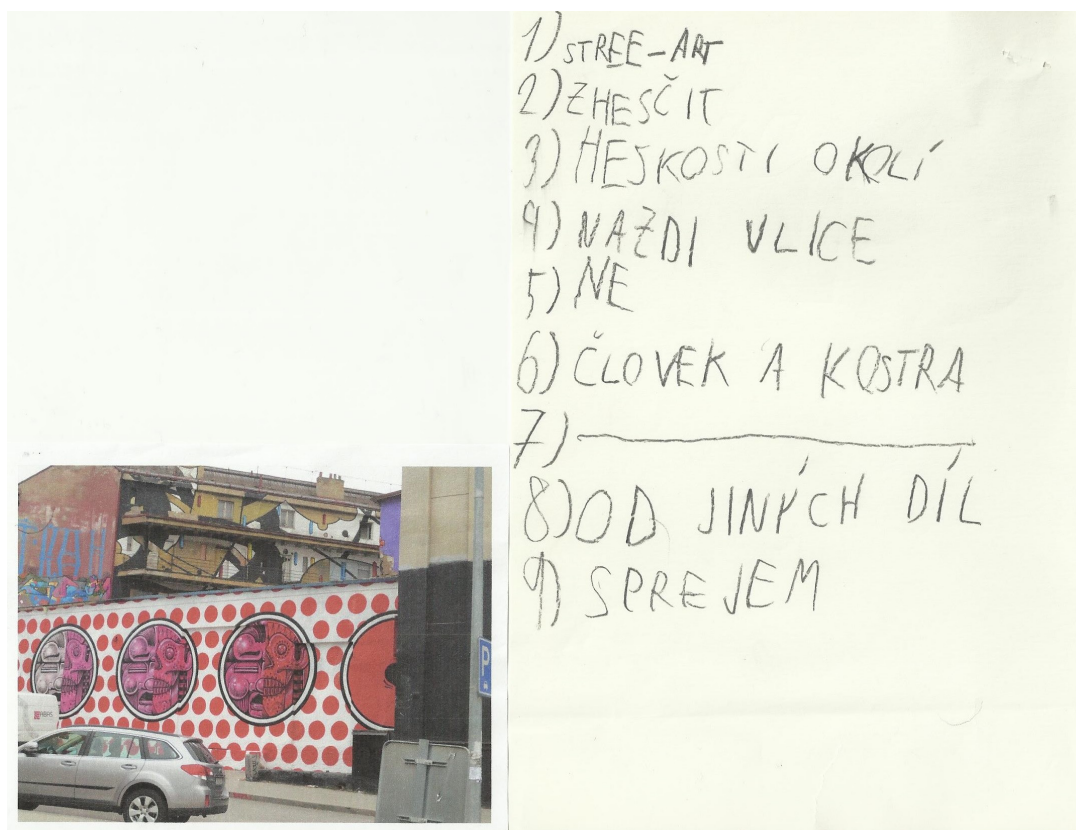 1) STREE-ART
2) ZHESČIT
3) HESKOSTI OKOLÍ
4) NA ZDI VLICE
5) NE
6) ČLOVEK A KOSTRA
7)
8) OD JINÝCH DÍL
9) SPREJEM
P